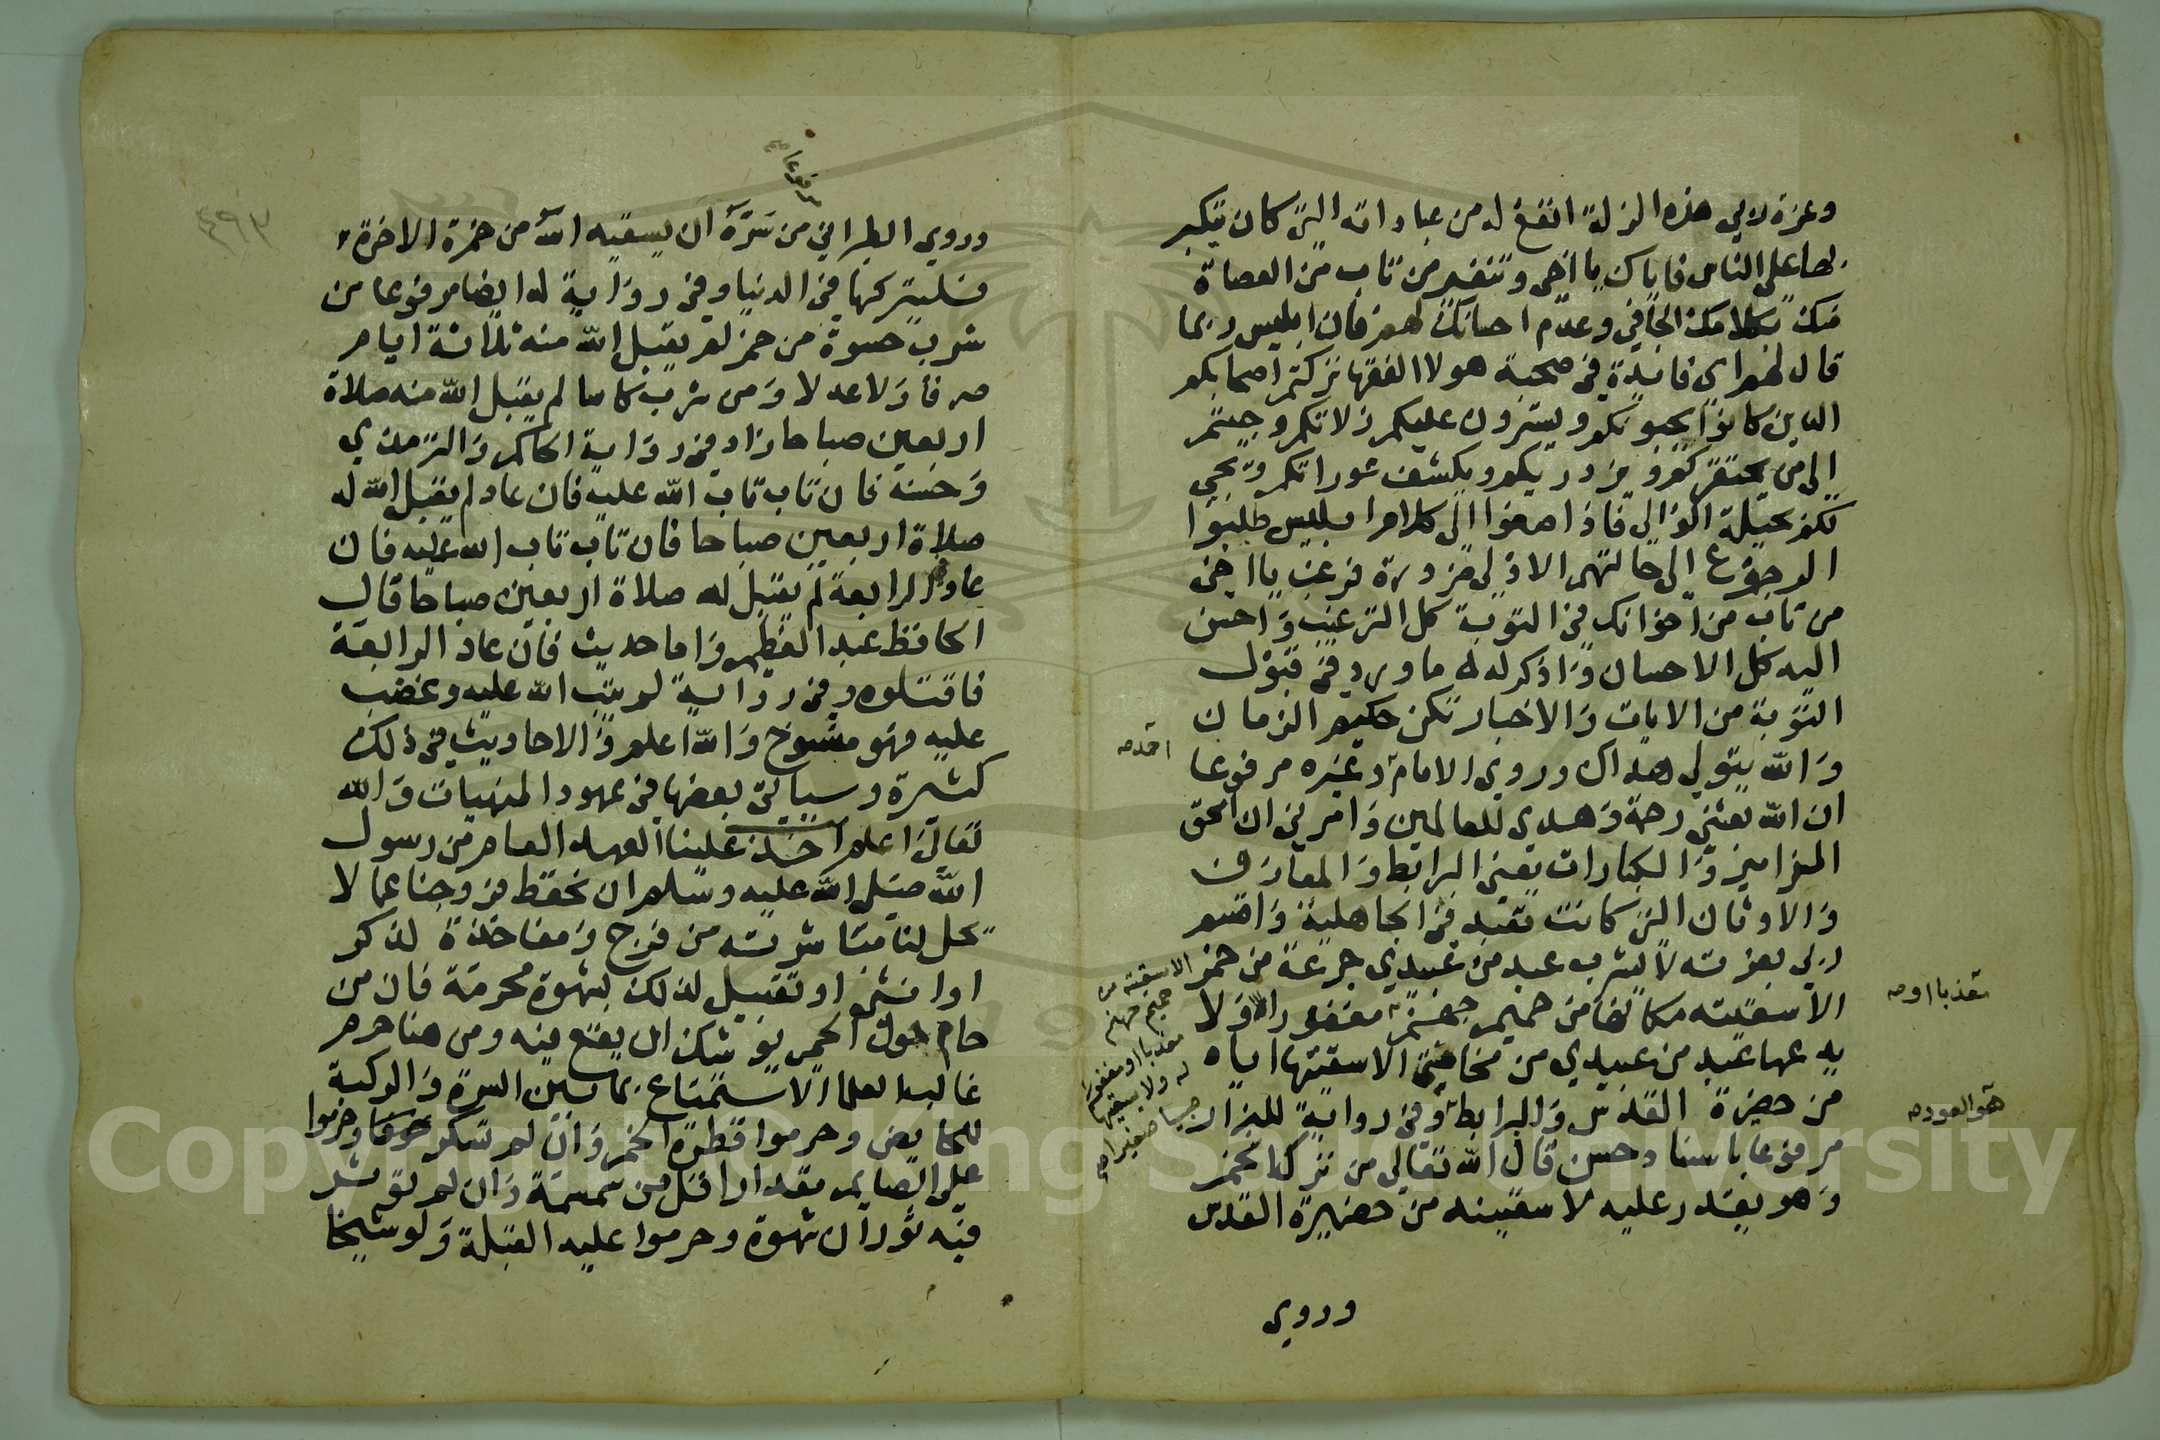 وعزة لابي هذه الزلة انفع له من عباداته التي كان يتكبر
بها على الناس فاياك يا اخي وتنفير من تاب من العصاة
منك بكلامك الجافي وعدم احسانك لهم فان ابليس ربما
قال لهم اي فايدة في صحبة هولا الفقها تركتم اصحابكم
الذين كانوا يحبونكم ويسترون عليكم زلاتكم وجيتم
الى من يحتقركم ويزدريكم ويكشف عوراتكم ويجي
لكم بحيلة اذا اصغوا الى كلام ابليس طلبوا
الرجوع الى حالتهم الاولى ضرورة فرغب يا اخي
من تاب من اخوانك في التوبة كل الترغيب واحسن
اليه كل الاحسان واذكر له ما ورد في قبول
التوبة من الايات والاخبار تكن حكيم الزمان
والله يتولى هداك وروى الامام وغيره مرفوعا
احمد صح
ان الله بعثني رحمة وهدى للعالمين وامرني ان امحق
المزامير والكبارات يعني البرابط والمعازف
والاوثان التي كانت تعبد في الجاهلية واقسم
ربي بعزته لا يشرب عبد من عبيدي جرعة من خمر
الا سقيته مكانها من حميم جهنم مغفورا له ولا
معذبا او صح
الا سقيته من
حميم جهنم
معذبا او مغفورا
له ولا يسقيها
صبيا صغيرا صح
يدعها عبد من عبيدي من مخافتي الا سقيتها اياه
من حضرة القدس والبرابط وفي رواية للبزار
هو العود صح
مرفوعا باسناد حسن قال الله تعالى من ترك الخمر
وهو يقدر عليه لاسقينه من حضيرة القدس
وروى
٤٩٣
مرفوعا صح
وروى الطبراني من سره ان يسقيه الله من خمرة الاخرة
فليتركها في الدنيا وفي رواية له ايضا مرفوعا من
شرب حسوة من خمر لم يقبل الله منه ثلاثة ايام
صرفا ولا عدلا ومن شرب كاسا لم يقبل الله منه صلاة
اربعين صباحا زاد في رواية الحاكم والترمذي
وحسنه فان تاب تاب الله عليه فان عاد لم يقبل الله له
صلاة اربعين صباحا فان تاب تاب الله عليه فان
عاد الرابعة لم يقبل له صلاة اربعين صباحا قال
الحافظ عبد العظيم واما حديث فان عاد الرابعة
فاقتلوه وفي رواية لم يتب الله عليه وغضب
عليه فهو منسوخ والله اعلم والاحاديث في ذلك
كثيرة وسياتي بعضها في عهود المنهيات والله
تعالى اعلم اخذ علينا العهد العام من رسول
الله صلى الله عليه وسلم ان نحفظ فروجنا عما لا
يحل لنا مباشرته من فرج ومفاخذة لذكر
او انثى او تقبيل لذلك بشهوة محرمة فان من
حام حول الحمى يوشك ان يقع فيه ومن هنا حرم
غالب العلما الاستمتاع بما بين السرة والركبة
للحايض وحرموا قطرة الخمر وان لم تسكر خوفا وحرموا
على الصايم مقدار اقل من سمسمة وان لم تؤثر
فيه ثوران شهوة وحرموا عليه القبلة ولو شيخا